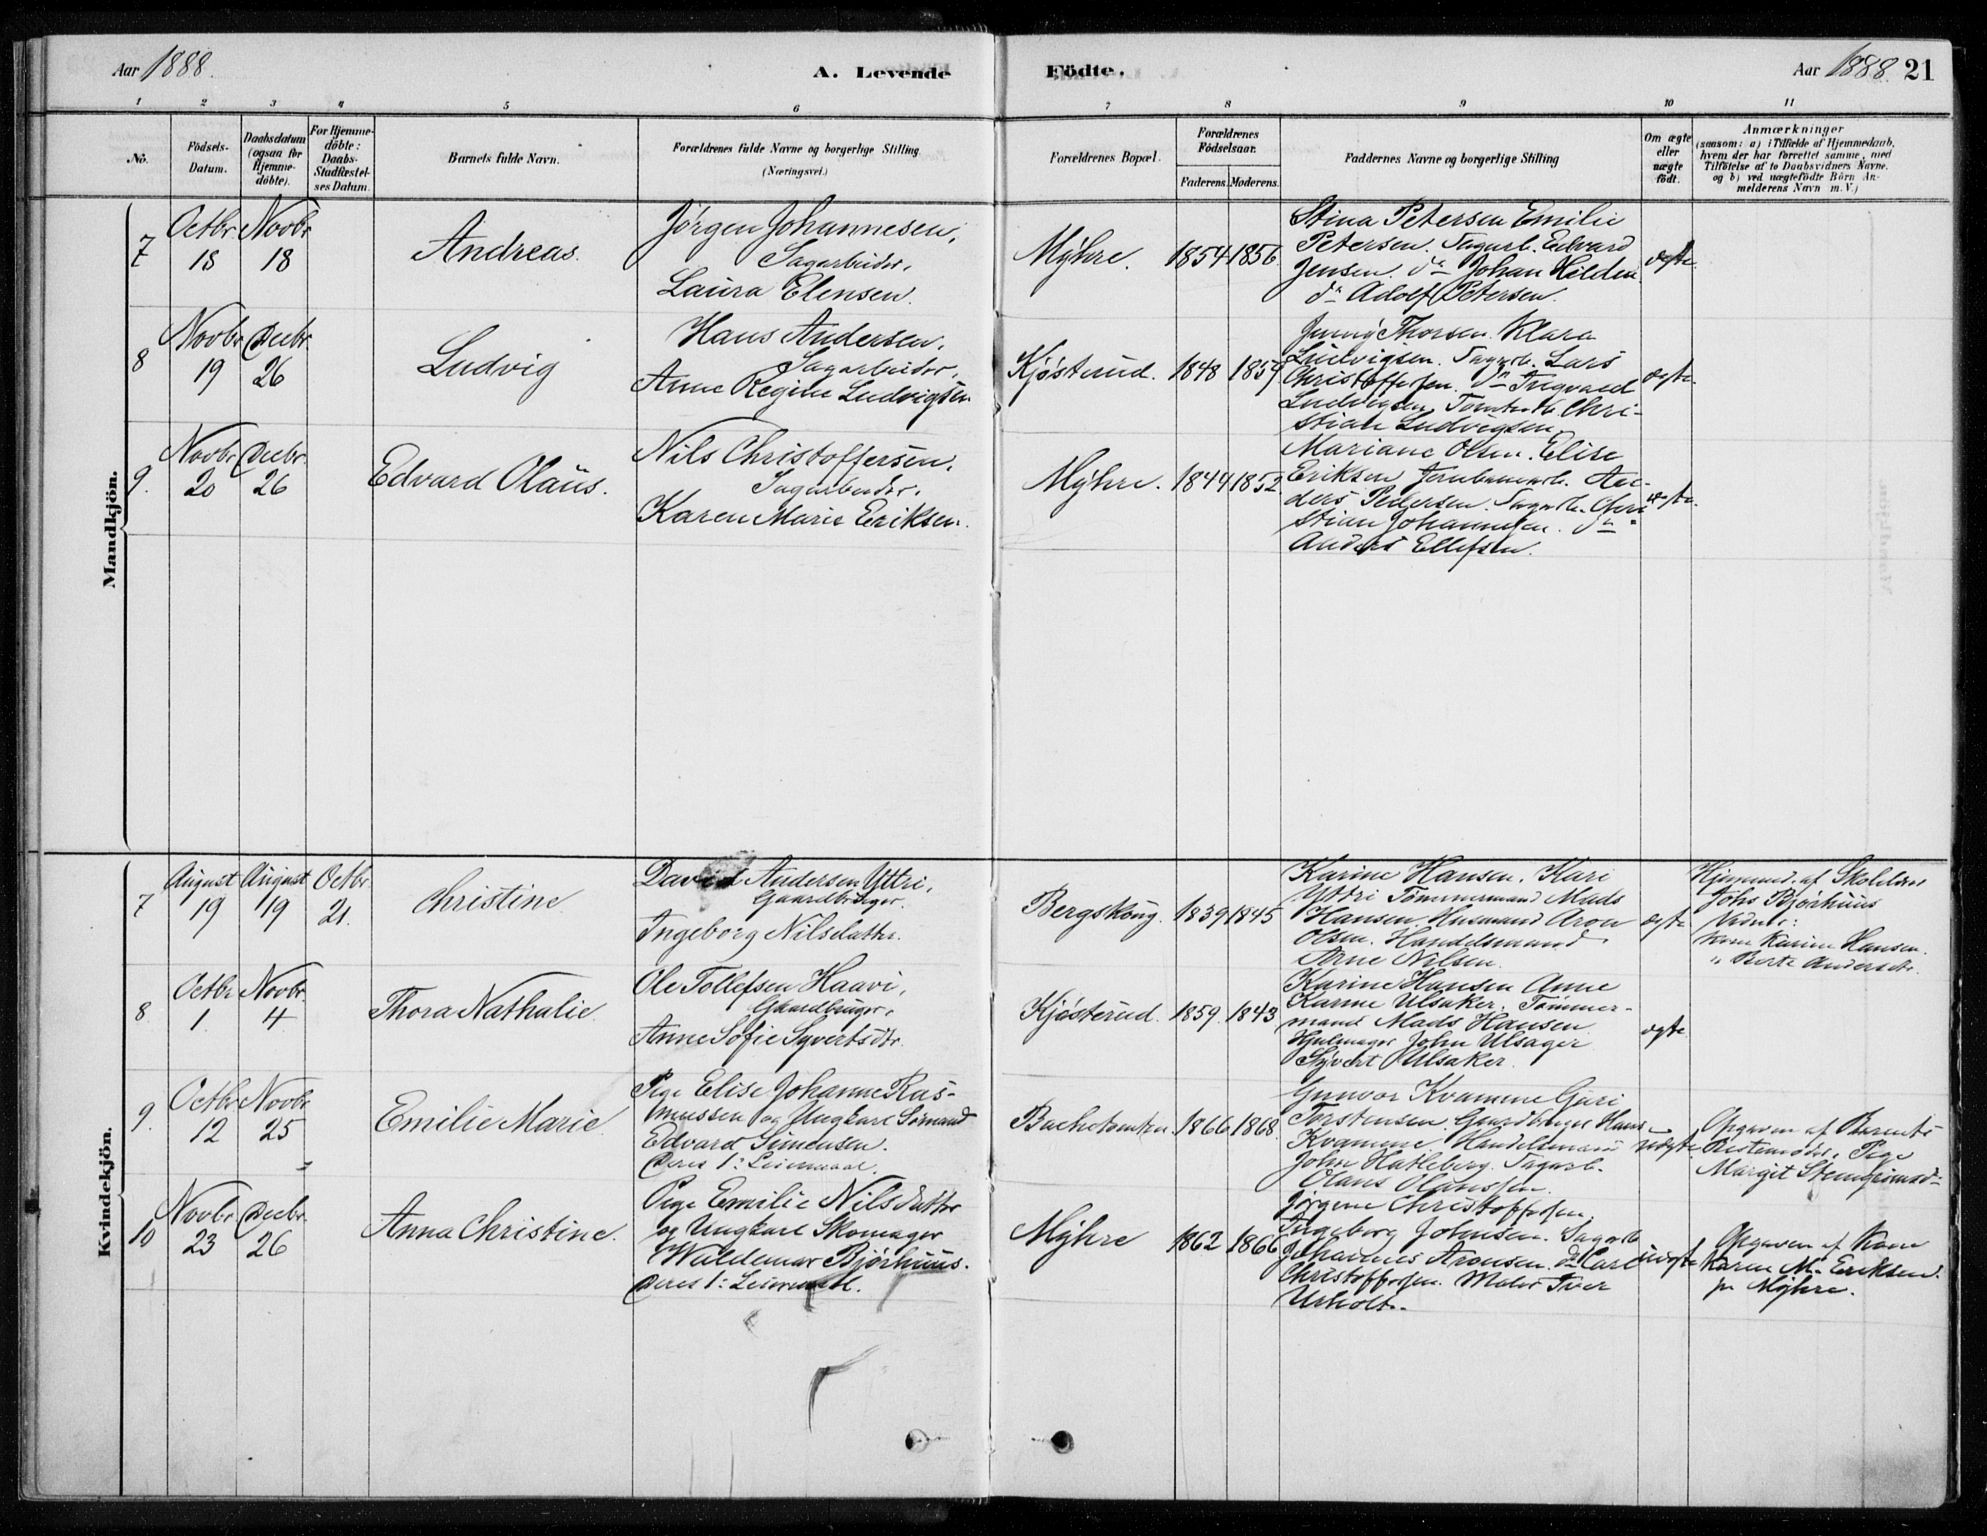 Aar 1888.
A. Levende
Födte.
Aar 1888. 21
1 2 3 4 5 6 7 8 9 10 11
No.
Födsels-
Datum.
Daabsdatum
(ogsaa for
Hjemme-
döbte).
For Hjemme-
döbte:
Daabs-
Stadfæstel-
ses Datum.
Barnets fulde Navn.
Forældrenes fulde Navne og borgerlige Stilling
(Næringsvei.)
Forældrenes Bopæl.
Forældrenes
Födselsaar.
Faderens. Moderens.
Faddernes Navne og borgerlige Stilling
Om ægte
eller
uægte
födt.
Anmærkninger
(saasom: a) i Tilfælde af Hjemmedaab,
hvem der har forrettet samme, med
Tilföielse af to Daabsvidners Navne.
og b) ved uægtefödte Börn An-
melderens Navn m. V.)
Mandkjön.
7
Octbr
18
Novbr
18
Andreas.
Jörgen Johannesen,
Sagarbeider,
Laura Elensen.
Myhre.
1854 1856
Stina Petersen Emilie
Petersen. Sagarb. Edvard
Jensen. do Johan Hilden
do Adolf Petersen.
ægte.
8
Novbr
19
Decbr
26
Ludvig
Hans Andersen,
Sagarbeider,
Anne Regine Ludvigsen
Kjøsterud.
1848 1859
Thorsen. Klara
Ludvigsen. Sagarb. Lars
Christoffersen. do
Ludvigsen Chri-
stian Ludvigsen.
ægte.
9.
Novbr
20
Decbr.
26
Edvard Olaüs.
Nils Christoffersen,
Sagarbeider,
Karen Marie Eriksen.
Myhre.
1844 1852.
Mariane Olsen. Elise
Eriksen An-
ders Pedersen. Sagarb. Chri
stian Johannesen. do
Anders Ellefsen.
ægte.
Kvindekjön.
7
August
19
August
19
Octbr.
21.
Christine
David Andersen Yttri,
Gaardbruger.
Ingeborg Nilsdatter.
Bergskoug.
1839 1845
Karine Hansen. Kari
Yttri Tömmermand Mads
Hansen Husmand Aron
Olsen. Handelsmand
Arne Nilsen.
ægte
Hjemmed. af Skolelærer
Johs Bjørhuus
Vidner:
Kone Karine Hansen.
" Berte Andersdtr.
8
Octbr
1.
Novbr.
4
Thora Nathalie.
Ole Tollefsen Haavi,
Gaardbruger,
Anne Sofie Syvertsdtr.
Kjøsterud.
1859. 1843
Karine Hansen Anne
Karine Ulsaker. Tømmer-
mand Mads Hansen
Hjulmager John Ulsager
Syvert Ulsaker.
ægte
9.
Octbr
12
Novbr
25
Emilie Marie
Pige Elise Johanne Ras-
mussen og Ungkarl Sømand
Edvard Simensen.
Deres 1ste Leiermaal.
1866 1868
Gunvor Kvamme Guri
Torstensen. Gaardbruger Hans
Kvamme Handelsmand
John Hatleberg. Sagarb.
Olaus Olaussen.
uægte
Opgaven af Barnets
Bestemoder, Pige
Margit
10
Novbr
23
Decbr
26
Anna Christine.
Pige Emilie Nilsdatter
og Ungkarl Skomager
Waldemar Bjørhuus.
Deres 1ste Leiermaal.
Myhre
1862 1866
Jørgine Christoffersen.
Ingeborg Johnsen. Sagarb
Johannes Aronsen. do Carl
Christoffersen. Maler Iver
Urholt.
uægte
Opgaven af Kone
Karen M. Eriksen.
Myhre.